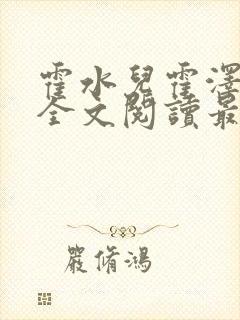 霍水兒霍澤
全文閱讀最
嚴脩鴻